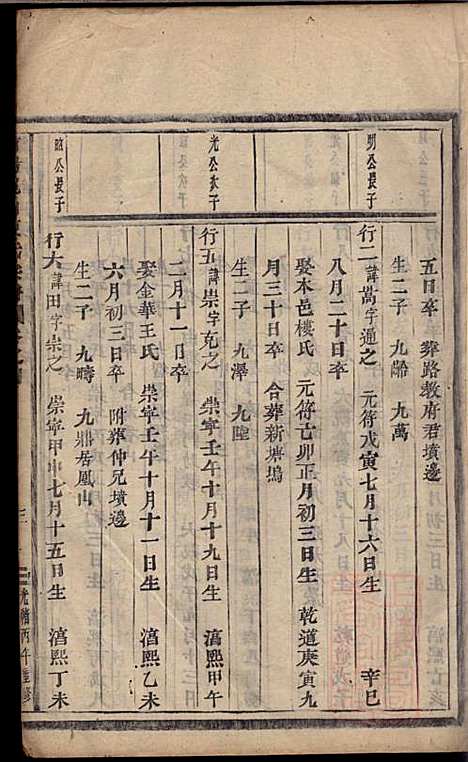 五日卒　葬路教府君墳邊
生二子　九齡　九萬
明公長子
行二諱嵩字通之　元符戊寅七月十六日生　辛巳
八月二十日卒
娶本邑樓氏　元符己卯正月初三日生　乾道庚寅九
月三十日卒　合葬新塘塢
生二子　九澤　九陸
光公次子
行五諱崇字克之　崇寜壬午十月十九日生　湻熙甲午
二月十一日卒
娶金華王氏　崇寜壬午十月十一日生　湻熙乙未
六月初三日卒　附葬仲兄墳邊
生二子　九疇　九鼎居鳳山
公長子
行六諱田字崇之　崇寜甲申七月十五日生　湻熙丁未
三
光緒丙午重修